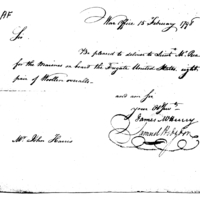 War Office 15 February 1798
Sir
Be pleased to deliver to Lieut. Mr
for the Marines on board the Frigate United States, eight
pair of Woollen overalls.
and am Sir
your Obt. Servt.
James McHenry
Samuel Hodgdon
Mr John Harris